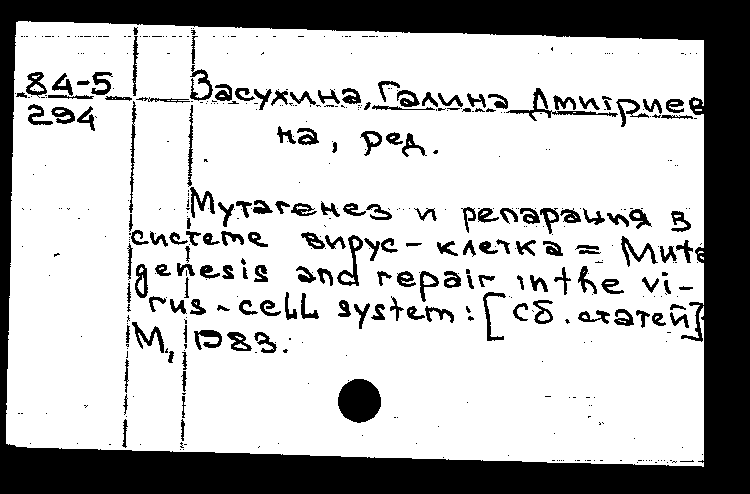 84-5
294
Засухина, Галина Дмитриев
на, ред.
Мутагенез и репарация в
системе вирус-клетка = Muta
genesis and repair in the vi-
rus-cell system: [Сб. статей]
М., 1983.